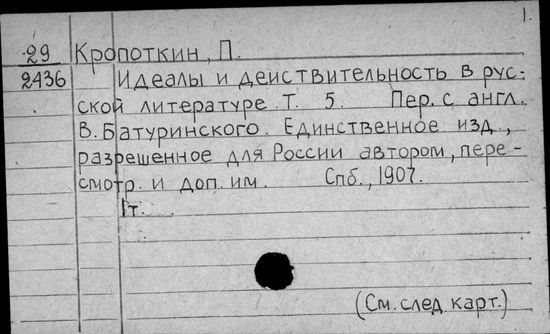 1.
29 Кропоткин, П.
2436 Идеалы и действительность в рус-
ской литературе. Т. 5. Пер. с англ.
В. Батуринского. Единственное изд.,
разрешенное для России автором, пере-
смотр. и доп. им. Спб., 1907.
1т.
(См. след. карт.)